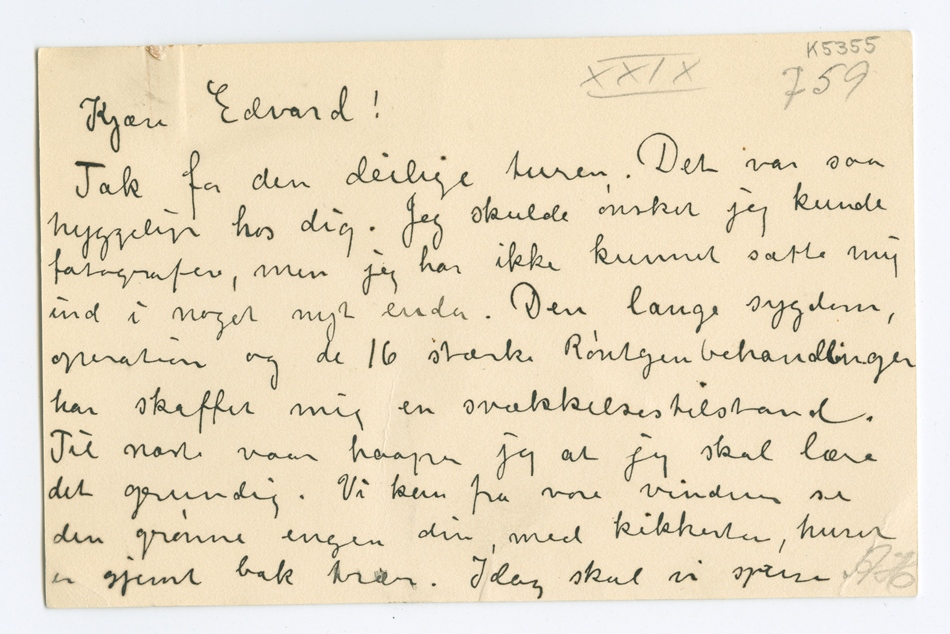 K5355
XXIX
759
Kjære Edvard!
Tak for den deilige turen. Det var saa
hyggelig hos dig. Jeg skulde ønsket jeg kunde
fotografere, men jeg har ikke kunnet sætte mig
ind i noget nyt enda. Den lange sygdom,
operation og de 16 stærke Røntgenbehandlinger
har skaffet mig en svækkelsestilstand.
Til næste vaar haaper jeg at jeg skal lære
det grundig. Vi kan fra vore vinduer se
den grønne engen din, med kikkerten, huset
er gjemt bak trær. Idag skal vi spise